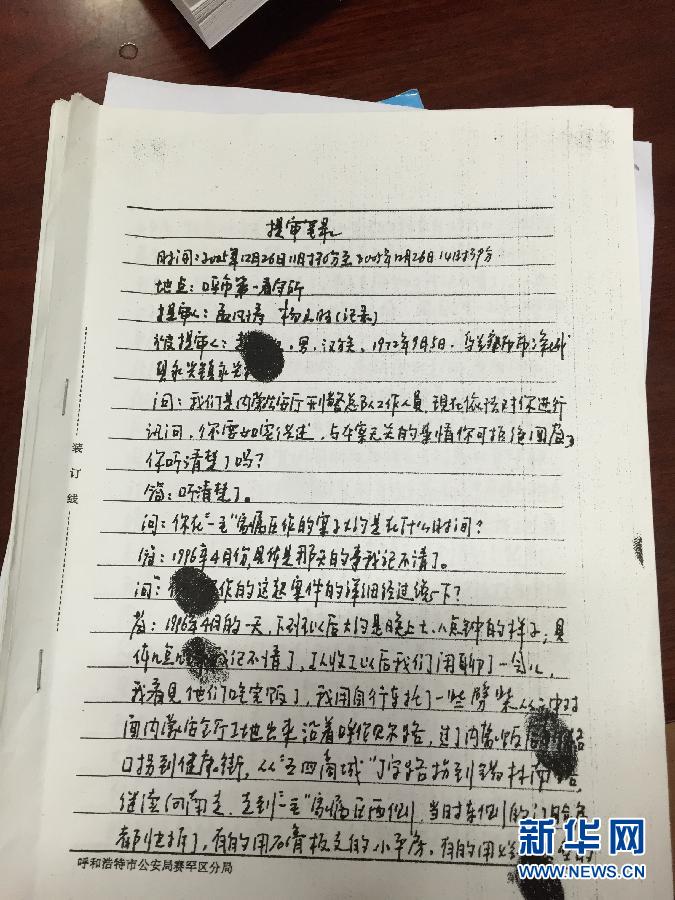 提审笔录
时间：2005年12月26日11时30分至2005年12月26日14时39分
地点：呼市第一看守所
提审人：
被提审人：男，汉族，1972年9月5日，乌兰察布市凉城
县永兴镇永兴
问：我们是内蒙公安厅刑警总队工作人员，现在依法对你进行
讯问，你要如实供述，与本案无关的事情你可拒绝回答，
你听清楚了吗？
答：听清楚了。
问：你在“一毛”家属区作的案子大约是在什么时间？
答：1996年4月份，具体是那天的事我记不清了。
问：作的这起案件的详细经过统一下？
答：1996年4月的一天，下班以后大约是晚上七、八点钟的样子，具
体几点记不清了，工人收工以后我们闲聊了一会儿，
我看见他们吃完饭了，我用自行车托了一些劈柴从
面内蒙公安厅工地出来沿着呼伦贝尔路，过了内蒙饭店路
口拐到健康街，从“五四商城”丁字路拐到锡林南路，
继续向南走，走到“一毛”家属区西侧，当时东侧的门脸房
都快拆了，有的用石膏板支的小平房，有的用
呼和浩特市公安局赛罕区分局
装订线
新华网
NEWS